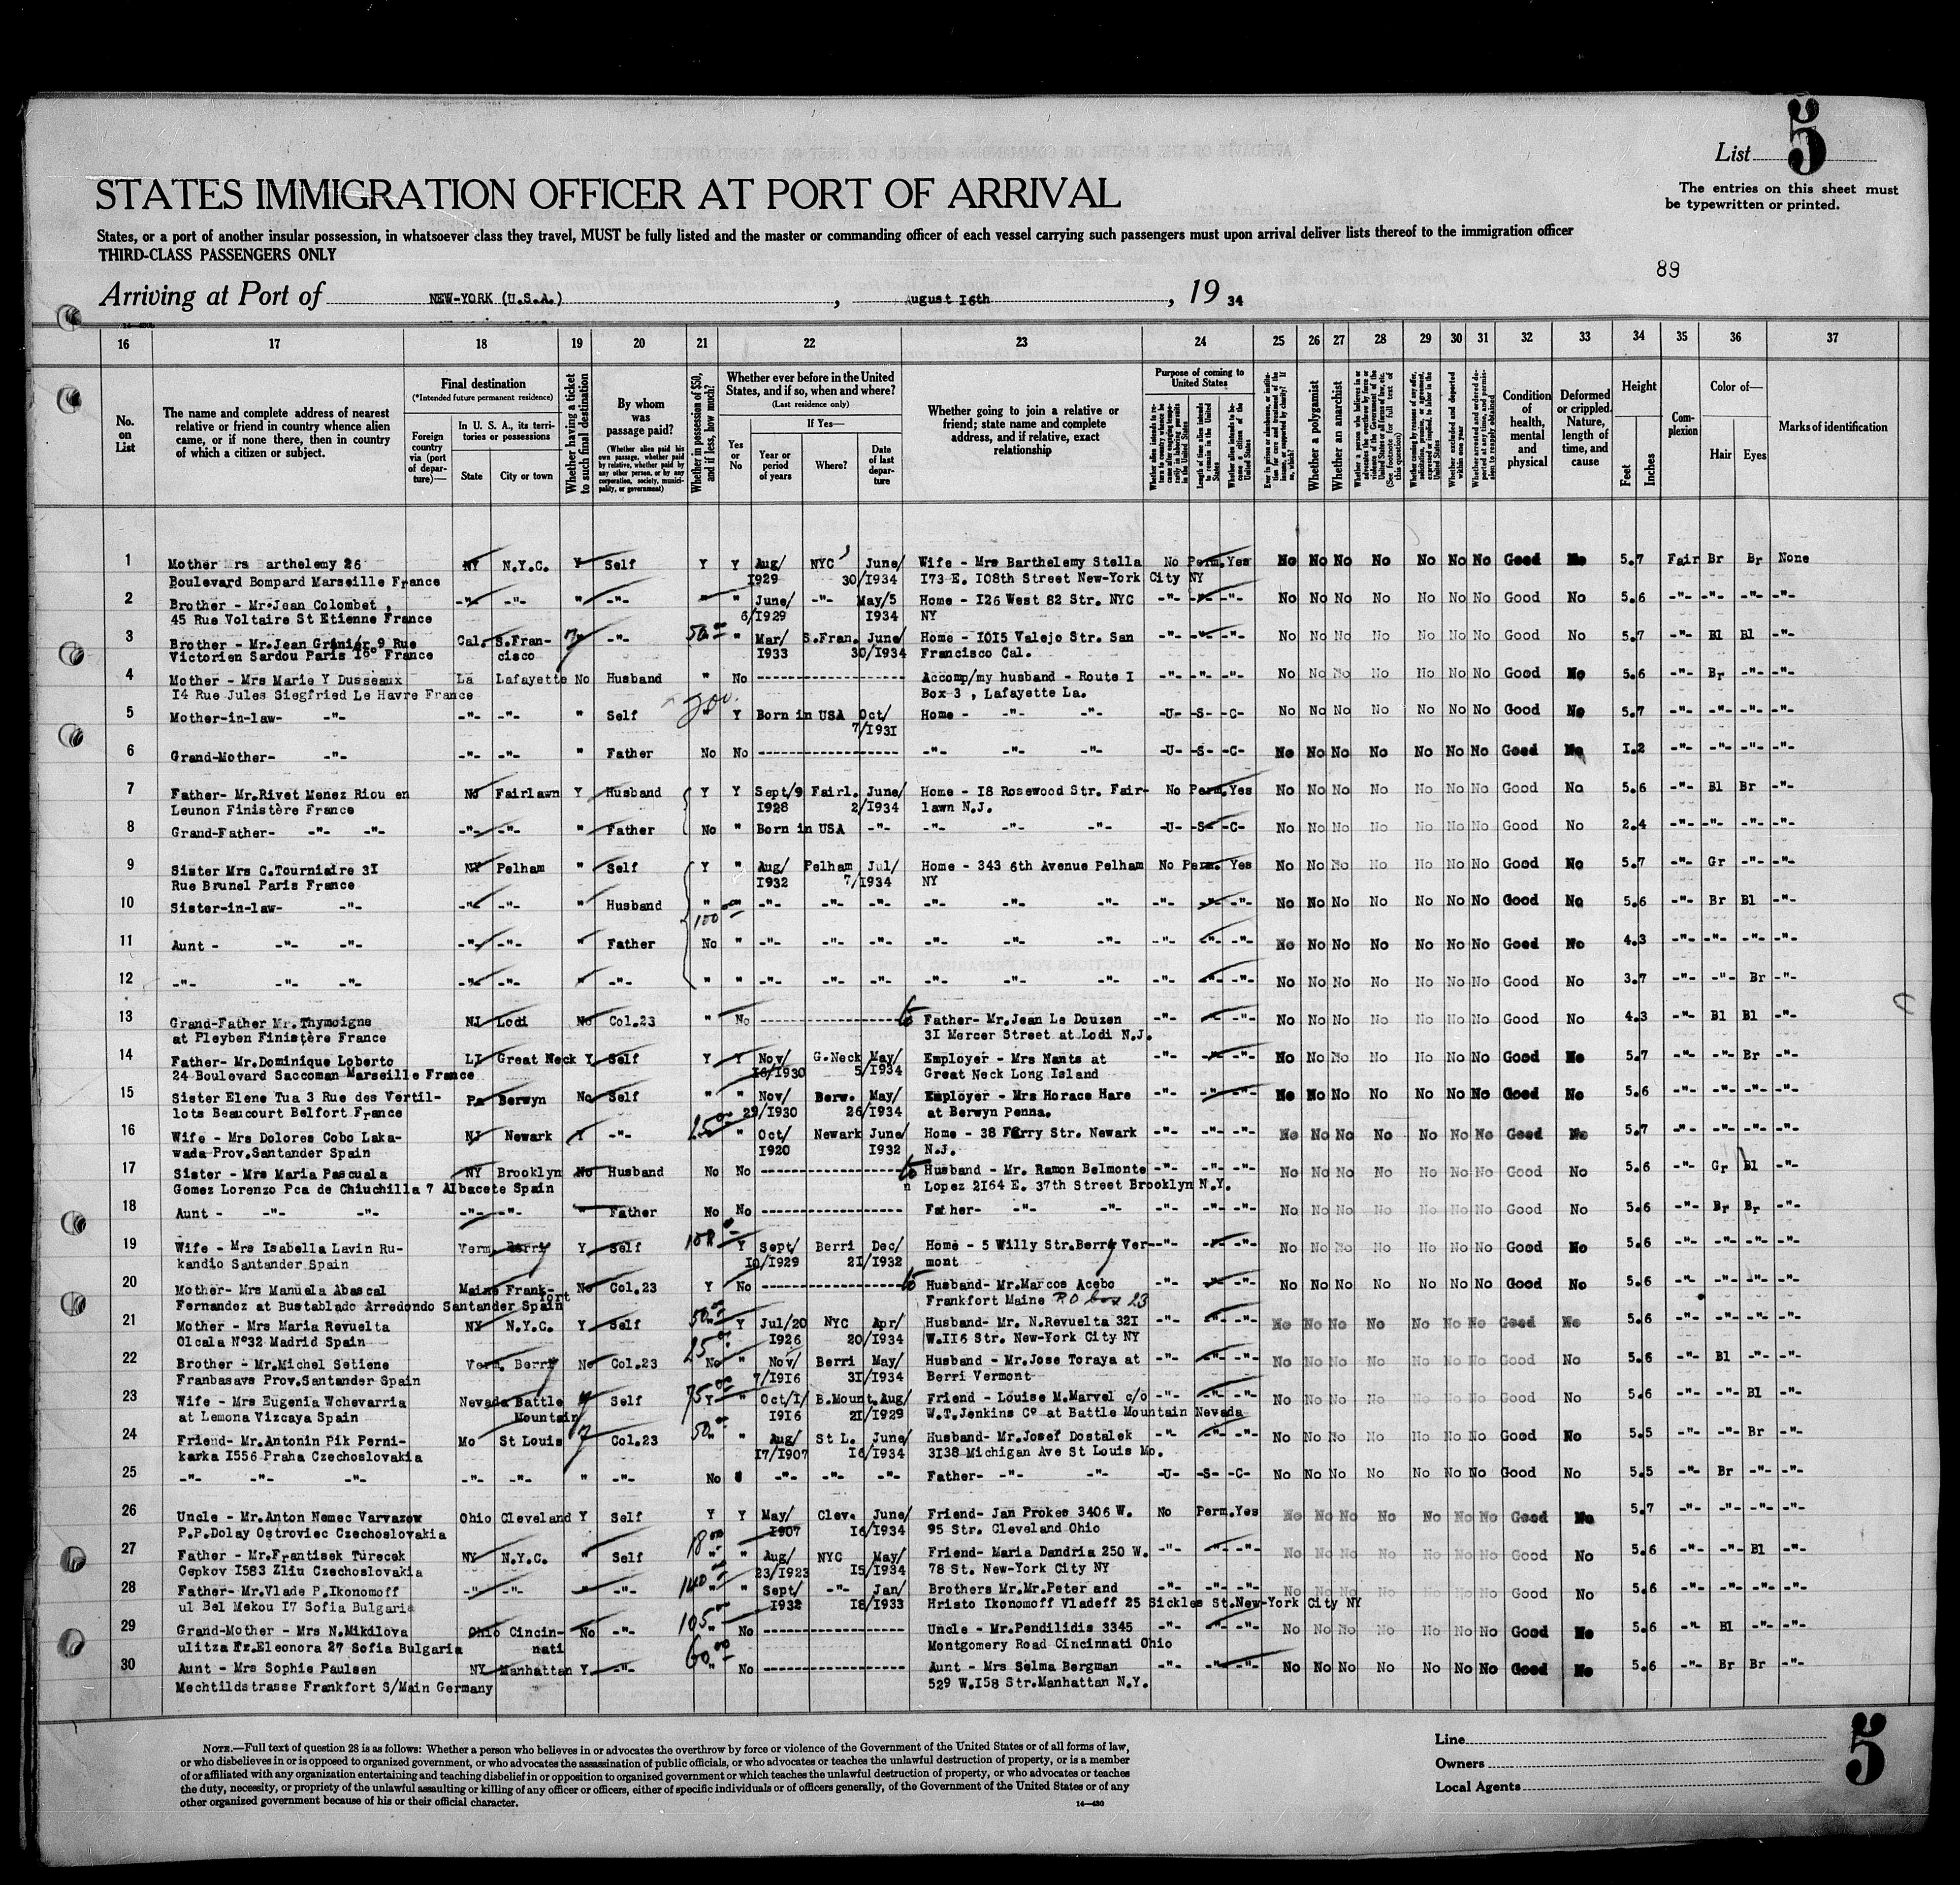 List 5
The entries on this sheet must
be typewritten or printed.
STATES IMMIGRATION OFFICER AT PORT OF ARRIVAL
States, or a port of another insular possession, in whatsoever class they travel, MUST be fully listed and the master or commanding officer of each vessel carrying such passengers must upon arrival deliver lists thereof to the immigration officer
THIRD-CLASS PASSENGERS ONLY
89
Arriving at Port of NEW-YORK (U.S.A.) , August I6th , 19 34
16 17 18 19 20 21 22 23 24 25 26 27 28 29 30 31 32 33 34 35 36 37
No. on List
The name and complete address of nearest relative or friend in country whence alien came, or if none there, then in country of which a citizen or subject.
Final destination
(*Intended future permanent residence)
Foreign country via (port of departure)—
In U. S. A., its territories or possessions
State City or town
Whether having a ticket to such final destination
By whom was passage paid?
(Whether alien paid his own passage, whether paid by relative, whether paid by any other person, or by any corporation, society, municipality, or government)
Whether in possession of $50, and if less, how much?
Whether ever before in the United States, and if so, when and where?
(Last residence only)
Yes or No
If Yes—
Year or period of years Where? Date of last departure
Whether going to join a relative or friend; state name and complete address, and if relative, exact relationship
Purpose of coming to United States
Whether a polygamist
Whether an anarchist
Condition of health, mental and physical
Deformed or crippled. Nature, length of time, and cause
Height
Feet Inches
Complexion
Color of—
Hair Eyes
Marks of identification
1 Mother Mrs Barthelemy 26 NY N.Y.C. Y Self Y Y Aug/ NYC June/ Wife - Mrs Barthelemy Stella No Perm. Yes No No No No No No No Good No 5.7 Fair Br Br None
Boulevard Bompard Marseille France I929 30/I934 I73 E. I08th Street New-York City NY
2 Brother - Mr.Jean Colombet , -"- -"- " -"- " " June/ -"- May/5 Home - I26 West 82 Str. NYC -"- -"- -"- No No No No No No No Good No 5.6 -"- -"- -"- -"-
45 Rue Voltaire St Etienne France 6/I929 I934 NY
3 Brother - Mr.Jean Granier 9 Rue Cal. S.Fran- " -"- 50.00 " Mar/ S.Fran. June/ Home - I0I5 Valejo Str. San -"- -"- -"- No No No No No No No Good No 5.7 -"- Bl Bl -"-
Victorien Sardou Paris I6° France cisco I933 30/I934 Francisco Cal.
4 Mother - Mrs Marie Y Dusseaux La Lafayette No Husband " No Accomp/my husband - Route I -"- -"- -"- No No No No No No No Good No 5.6 -"- Br -"- -"-
I4 Rue Jules Siegfried Le Havre France Box 3 , Lafayette La.
5 Mother-in-law- -"- -"- -"- " Self 200. Y Born in USA Oct/ Home - -"- -"- -U- -S- -C- No No No No No No No Good No 5.7 -"- -"- -"- -"-
7/I93I
6 Grand-Mother- -"- -"- -"- " Father No No -"- -"- -"- -U- -S- -C- No No No No No No No Good No I.2 -"- -"- -"- -"-
7 Father- Mr.Rivet Menez Riou en NJ Fairlawn Y Husband Y Y Sept/9 Fairl. June/ Home - I8 Rosewood Str. Fair- No Perm. Yes No No No No No No No Good No 5.6 -"- Bl Br -"-
Leunon Finistère France I928 2/I934 lawn N.J.
8 Grand-Father- -"- -"- -"- -"- " Father No " Born in USA -"- -"- -"- -"- -U- -S- -C- No No No No No No No Good No 2.4 -"- -"- -"- -"-
9 Sister Mrs C.Tourniaire 3I NY Pelham " Self Y " Aug/ Pelham Jul/ Home - 343 6th Avenue Pelham No Perm. Yes No No No No No No No Good No 5.7 -"- Gr -"- -"-
Rue Brunel Paris France I932 7/I934 NY
10 Sister-in-law- -"- -"- -"- " Husband " " -"- -"- -"- -"- -"- -"- -"- -"- -"- No No No No No No No Good No 5.6 -"- Br Bl -"-
100
11 Aunt - -"- -"- -"- -"- " Father No " -"- -"- -"- -"- -"- -"- -"- -"- -"- No No No No No No No Good No 4.3 -"- -"- -"- -"-
12 -"- -"- -"- -"- -"- " -"- " " -"- -"- -"- -"- -"- -"- -"- -"- -"- No No No No No No No Good No 3.7 -"- -"- Br -"-
13 Grand-Father Mr.Thymoigne NJ Lodi No Col.23 " No to Father- Mr.Jean Le Douzen -"- -"- -"- No No No No No No No Good No 4.3 -"- Bl Bl -"-
at Pleyben Finistère France 3I Mercer Street at Lodi N.J.
14 Father- Mr.Dominique Loberto LI Great Neck Y Self Y Y Nov/ G.Neck May/ Employer - Mrs Nants at -"- -"- -"- No No No No No No No Good No 5.7 -"- -"- Br -"-
24 Boulevard Saccoman Marseille France I6/I930 5/I934 Great Neck Long Island
15 Sister Elene Tua 3 Rue des Vertil- Pa Berwyn No Self " " Nov/ Berw. May/ Employer - Mrs Horace Hare -"- -"- -"- No No No No No No No Good No 5.6 -"- -"- -"- -"-
lots Beaucourt Belfort France 29/I930 26/I934 at Berwyn Penna.
16 Wife - Mrs Dolores Cobo Laka- NJ Newark Y -"- 25.00 " Oct/ Newark June/ Home - 38 Ferry Str. Newark -"- -"- -"- No No No No No No No Good No 5.7 -"- -"- -"- -"-
wada Prov.Santander Spain I920 I932 N.J.
17 Sister - Mrs Maria Pascuala NY Brooklyn No Husband No No to Husband - Mr. Ramon Belmonte -"- -"- -"- No No No No No No No Good No 5.6 -"- Gr Bl -"-
Gomez Lorenzo Pca de Chiuchilla 7 Albacete Spain Lopez 2I64 E. 37th Street Brooklyn N.Y.
18 Aunt - -"- -"- -"- -"- " Father No No Father- -"- -"- -"- -"- -"- No No No No No No No Good No 5.6 -"- Br Br -"-
19 Wife - Mrs Isabella Lavin Ru- Verm Berry Y Self 100 Y Sept/ Berri Dec/ Home - 5 Willy Str.Berry Ver- -"- -"- -"- No No No No No No No Good No 5.6 -"- -"- -"- -"-
kandio Santander Spain I0/I929 2I/I932 mont
20 Mother- Mrs Manuela Abascal Maine Frank- No Col.23 Y No to Husband- Mr.Marcos Acebo -"- -"- -"- No No No No No No No Good No 5.6 -"- -"- -"- -"-
Fernandez at Bustablado Arredondo Santander Spain fort Frankfort Maine P.O box 23
21 Mother - Mrs Maria Revuelta NY N.Y.C. Y Self 50.00 Y Jul/20 NYC Apr/ Husband- Mr. N.Revuelta 32I -"- -"- -"- No No No No No No No Good No 5.6 -"- -"- -"- -"-
Olcala N°32 Madrid Spain I926 20/I934 W.II6 Str. New-York City NY
22 Brother - Mr.Michel Setiene Verm. Berry No Col.23 25.00 No " Nov/ Berri May/ Husband - Mr.Jose Toraya at -"- -"- -"- No No No No No No No Good No 5.6 -"- Bl -"- -"-
Franbasavs Prov.Santander Spain 7/I916 3I/I934 Berri Vermont
23 Wife - Mrs Eugenia Wchevarria Nevada Battle Y Self 75.00 Y " Oct/I/ B.Mount. Aug/ Friend - Louise M.Marvel c/o -"- -"- -"- No No No No No No No Good No 5.6 -"- -"- Bl -"-
at Lemona Vizcaya Spain Mountain I9I6 2I/I929 W.T.Jenkins C° at Battle Mountain Nevada
24 Friend- Mr.Antonin Pik Perni- Mo St Louis Col.23 50.00 " " Aug/ St L. June/ Husband- Mr.Josef Dostalek -"- -"- -"- No No No No No No No Good No 5.5 -"- -"- Br -"-
karka I556 Praha Czechoslovakia I7/I907 I6/I934 3I38 Michigan Ave St Louis Mo.
25 -"- -"- -"- -"- -"- " -"- No -"- -"- -"- Father- -"- -"- -U- -S- -C- No No No No No No No Good No 5.5 -"- Br -"- -"-
26 Uncle - Mr.Anton Nemec Varvazow Ohio Cleveland Y Self Y Y May/ Clev. June/ Friend- Jan Prokes 3406 W. No Perm. Yes No No No No No No No Good No 5.7 -"- -"- -"- -"-
P.P.Dolay Ostroviec Czechoslovakia I907 I6/I934 95 Str. Cleveland Ohio
27 Father - Mr.Frantisek Turecek NY N.Y.C. " Self 18.00 " " Aug/ NYC May/ Friend- Maria Dandria 250 W. -"- -"- -"- No No No No No No No Good No 5.6 -"- -"- Bl -"-
Cepkov I583 Zliu Czechoslovakia 23/I923 I5/I934 78 St. New-York City NY
28 Father- Mr.Vlade P.Ikonomoff -"- -"- " -"- 140.00 " " Sept/ -"- Jan/ Brothers Mr.Mr.Peter and -"- -"- -"- No No No No No No No Good No 5.6 -"- -"- -"- -"-
ul Bel Mekou I7 Sofia Bulgaria I932 I8/I933 Hristo Ikonomoff Vladeff 25 Sickles St.New-York City NY
29 Grand-Mother - Mrs N.Mikilova Ohio Cincin- No -"- 105.00 " No Uncle - Mr.Pendilidis 3345 -"- -"- -"- No No No No No No No Good No 5.6 -"- Bl -"- -"-
ulitza Fr.Eleonora 27 Sofia Bulgaria nati Montgomery Road Cincinnati Ohio
30 Aunt - Mrs Sophie Paulsen NY Manhattan Y -"- 60.00 " No Aunt - Mrs Selma Bergman -"- -"- -"- No No No No No No No Good No 5.6 -"- Br Br -"-
Mechtildstrasse Frankfort S/Main Germany 529 W.I58 Str.Manhattan N.Y.
NOTE.—Full text of question 28 is as follows: Whether a person who believes in or advocates the overthrow by force or violence of the Government of the United States or of all forms of law,
or who disbelieves in or is opposed to organized government, or who advocates the assassination of public officials, or who advocates or teaches the unlawful destruction of property, or is a member
of or affiliated with any organization entertaining and teaching disbelief in or opposition to organized government or which teaches the unlawful destruction of property, or who advocates or teaches
the duty, necessity, or propriety of the unlawful assaulting or killing of any officer or officers, either of specific individuals or of officers generally, of the Government of the United States or of any
other organized government because of his or their official character.
14—430
Line
Owners
Local Agents
5